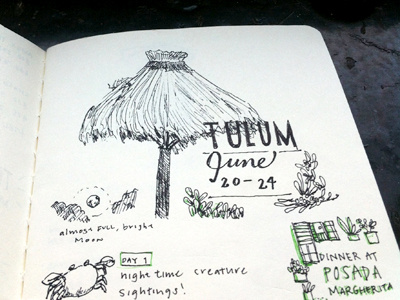 TULUM
June
20-24
almost full, bright
moon
DAY 1
nighttime creature
sightings!
DINNER AT
POSADA
MARGHERITA